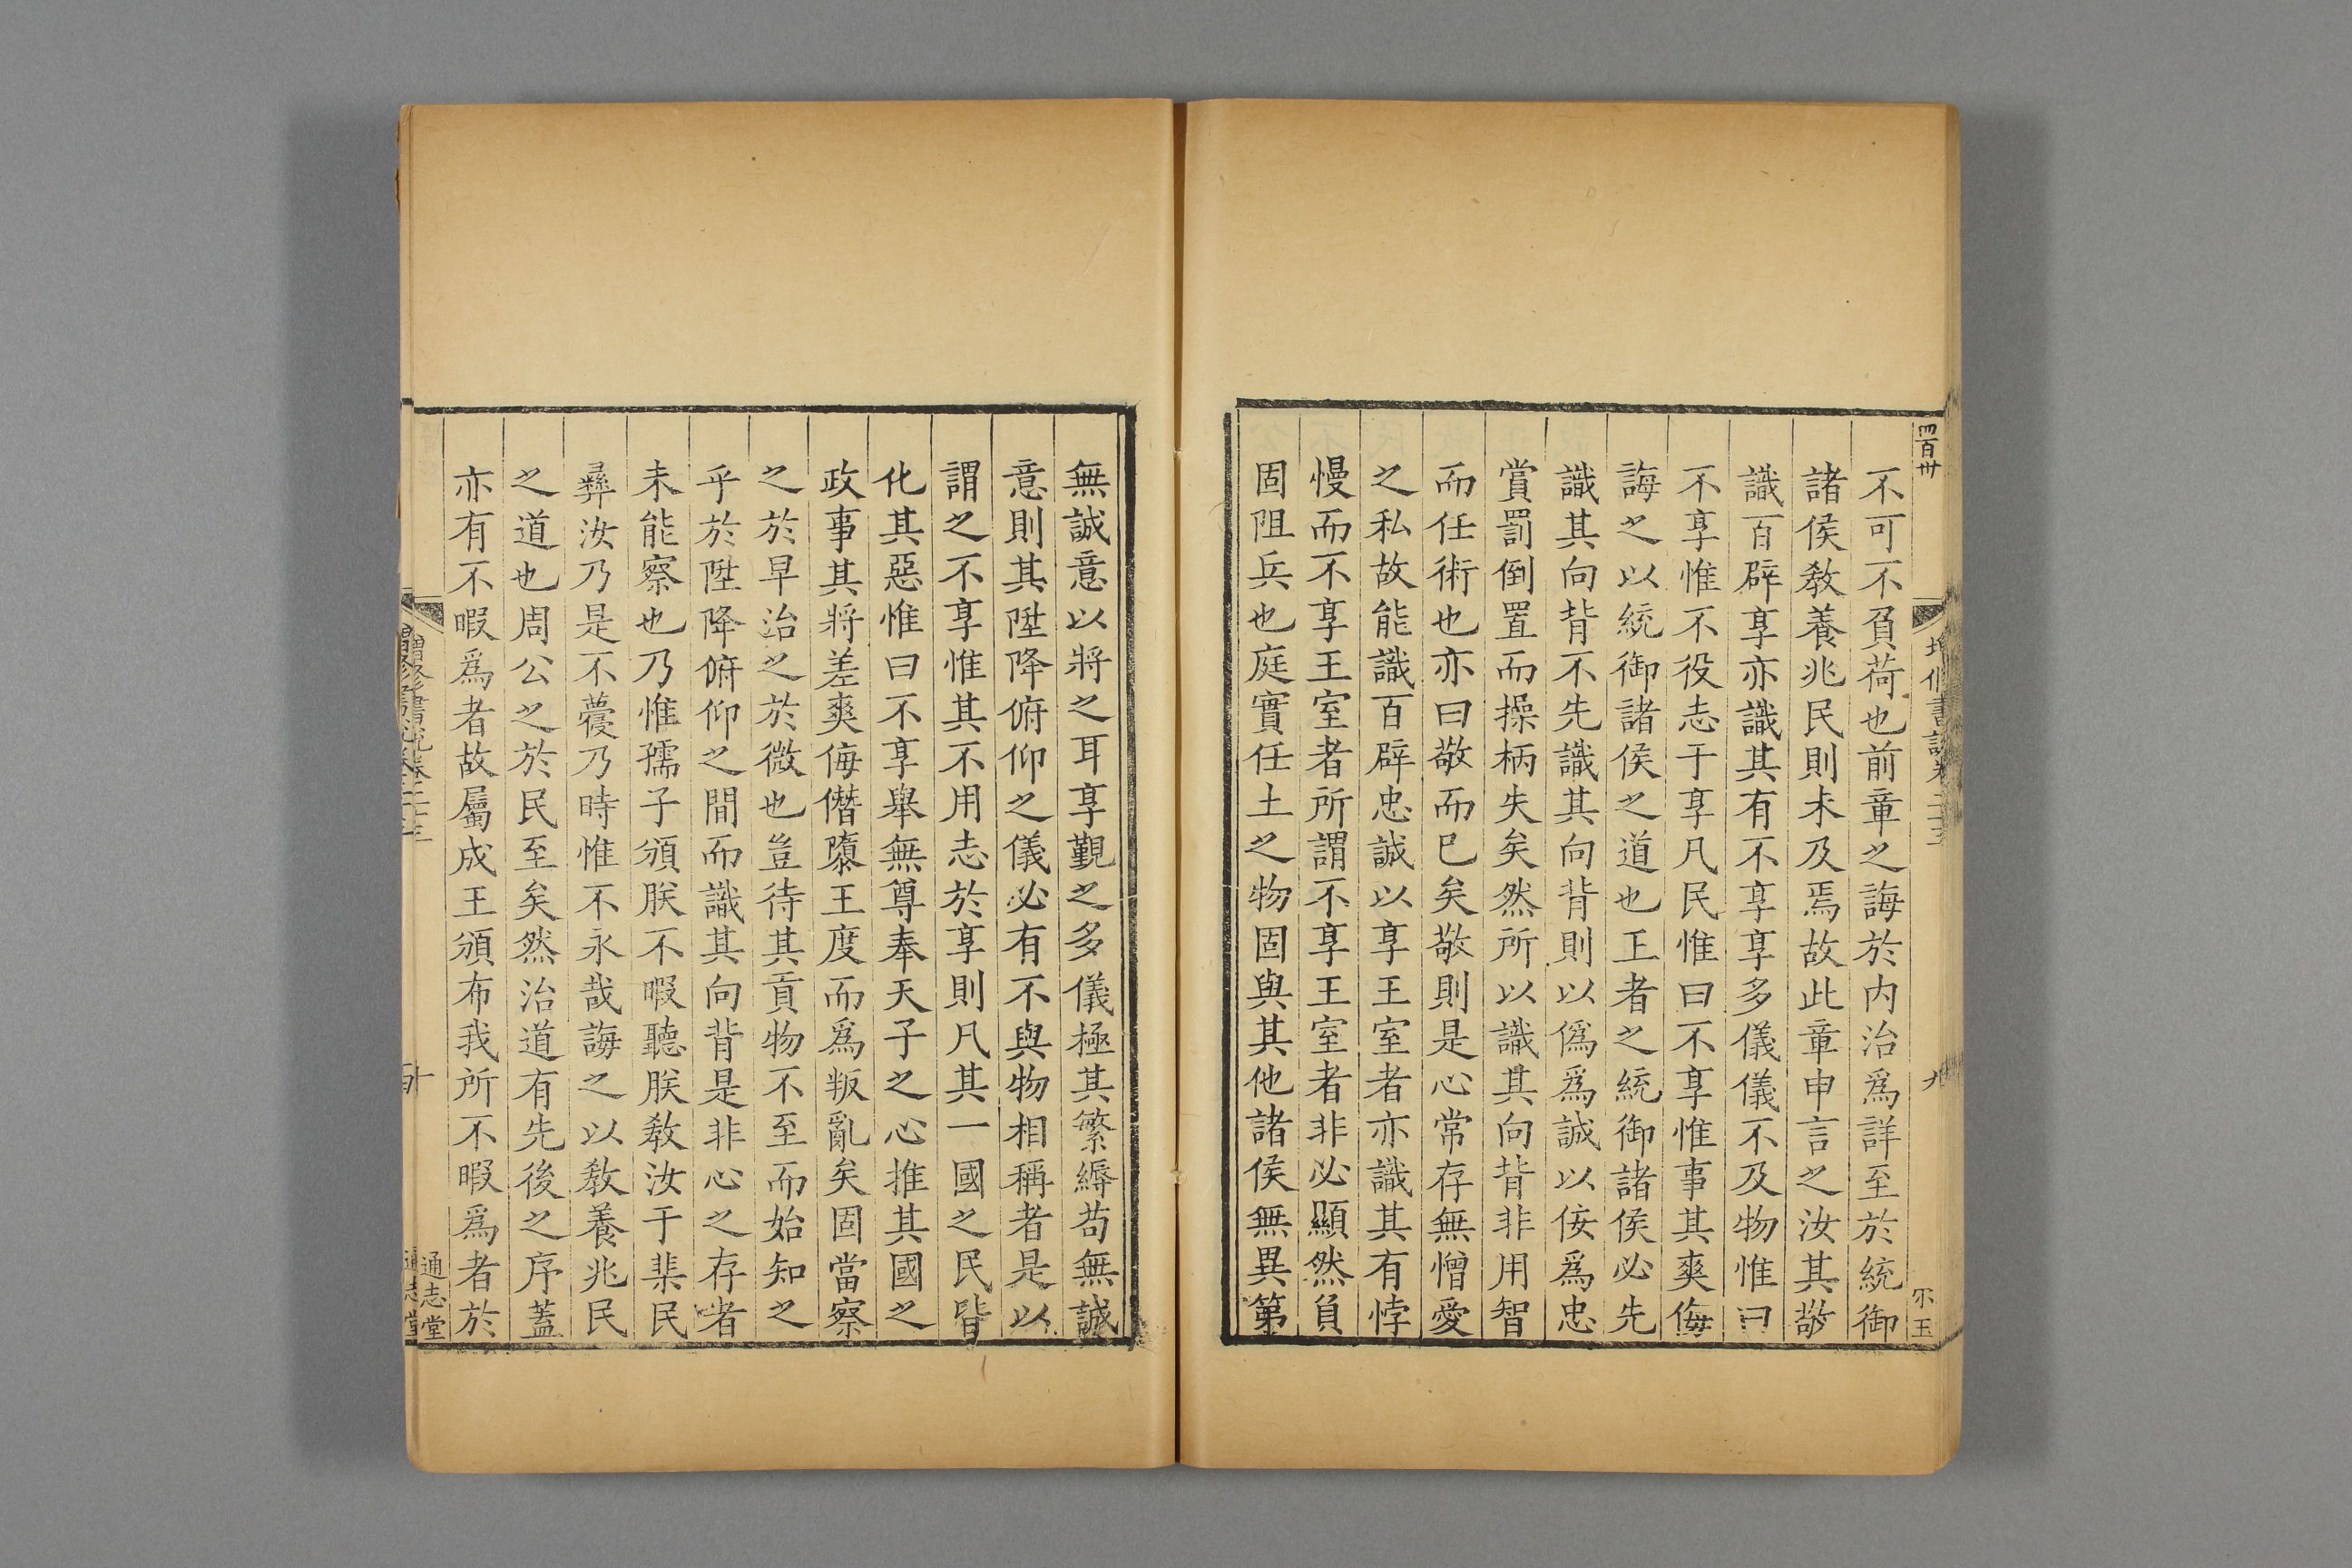 四百卅
增修書說卷二十三
九
不可不負荷也前章之誨於内治爲詳至於統御
諸侯教養兆民則未及焉故此章申言之汝其敬
識百辟享亦識其有不享享多儀儀不及物惟曰
不享惟不役志于享凡民惟曰不享惟事其爽侮
誨之以統御諸侯之道也王者之統御諸侯必先
識其向背不先識其向背則以僞爲誠以佞爲忠
賞罰倒置而操柄失矣然所以識其向背非用智
而任術也亦曰敬而已矣敬則是心常存無憎愛
之私故能識百辟忠誠以享王室者亦識其有悖
慢而不享王室者所謂不享王室者非必顯然負
固阻兵也庭實任土之物固與其他諸侯無異第
無誠意以將之耳享覲之多儀極其繁縟苟無誠
意則其陞降俯仰之儀必有不與物相稱者是以
謂之不享惟其不用志於享則凡其一國之民皆
化其惡惟曰不享舉無尊奉天子之心推其國之
政事其將差爽侮僭隳王度而爲叛亂矣固當察
之於早治之於微也豈待其貢物不至而始知之
乎於陞降俯仰之間而識其向背是非心之存者
未能察也乃惟孺子頒朕不暇聽朕教汝于棐民
彝汝乃是不蘉乃時惟不永哉誨之以教養兆民
之道也周公之於民至矣然治道有先後之序蓋
亦有不暇爲者故屬成王頒布我所不暇爲者於
增修書說卷二十三
十
通志堂